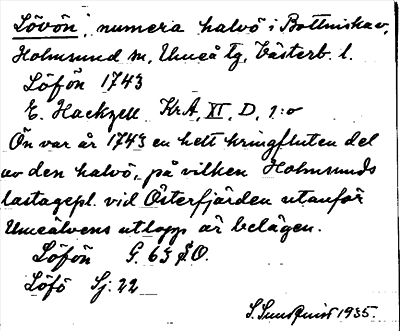 Lövön, numera halvö i Bottniska v,
Holmsund m, Umeå tg, Västerb. l.
Löfön 1743
E. Hackzell KrA, XI, D, 1:o
Ön var år 1743 en helt kringfluten del
av den halvö, på vilken Holmsunds
lastagepl. vid Österfjärden utanför
Umeälvens utlopp är belägen.
Löfön G. 63 SO.
Löfö Sj. 22
S. Sundquist 1935.